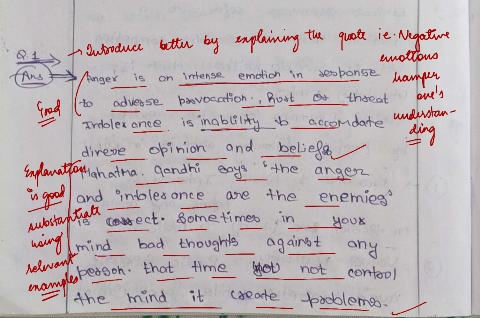 Q.1
→ Introduce better by explaining the quote i.e. Negative
emotions
hamper
one's
understan-
ding
Ans
Anger is an intense emotion in response
to adverse provocation, Hurt or threat
Intolerance is inability to accomdate
direse opinion and beliefs
Mahatma Gandhi says "the anger
and intolerance are the enemies"
is correct. Sometimes in your
mind bad thoughts against any
person. that time not control
the mind it create problems.
Good
Explanation
is good
substantiate
using
relevant
examples